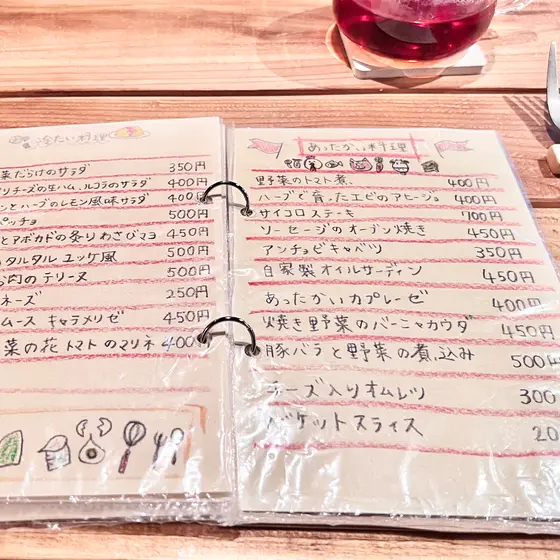 冷たい料理
菜だらけのサラダ 350円
リチーズの生ハム、ルコラのサラダ 400円
ンとハーブのレモン風味サラダ 400
ペッチョ 500円
とアボカドの炙りわさびマヨ 450円
タルタル ユッケ風 500円
お肉のテリーヌ 500円
ネーズ 250円
ムース キャラメリゼ 450円
菜の花 トマトのマリネ 400
あったかい料理
野菜のトマト煮、 400円
ハーブで育ったエビのアヒージョ 400円
サイコロステーキ 700円
ソーセージのオーブン焼き 450円
アンチョビキャベツ 350円
自家製オイルサーディン 450円
あったかいカプレーゼ 400円
焼き野菜のバーニャカウダ 450円
豚バラと野菜の煮込み 500円
チーズ入りオムレツ 300
バケットスライス 20